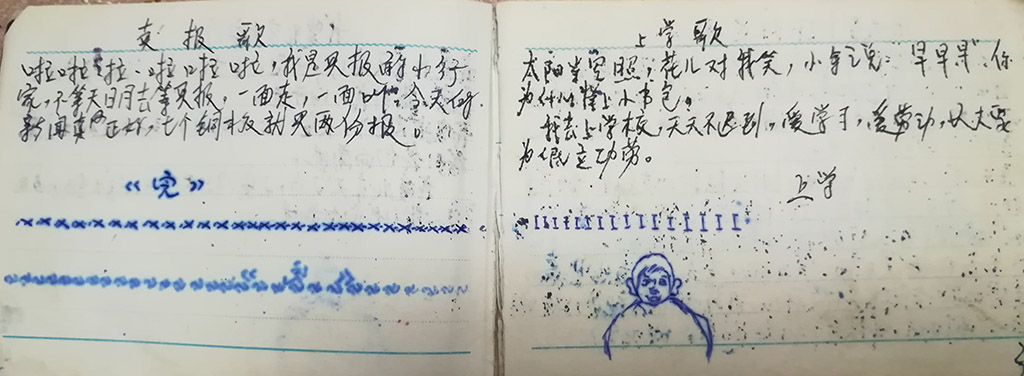 卖报歌
啦啦啦 啦啦啦，我是卖报的小行
家，不等天日月去等卖报，一面走，一面叫，今天的
新闻真正好，七个铜板就买两份报。
《完》
上学歌
太阳当空照，花儿对我笑，小鸟说："早早早"你
为什么背上小书包。
我去上学校，天天不迟到，爱学习，爱劳动，长大要
为人民立功劳。
上学